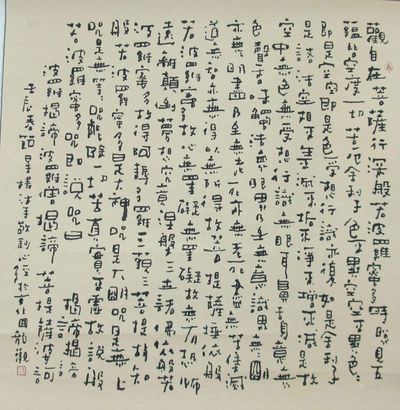 觀自在菩薩行深般若波羅蜜多時照見五
蘊皆空度一切苦厄舍利子色不異空空不異色色
即是空空即是色受想行識亦復如是舍利子
是諸法空相不生不滅不垢不淨不增不減是故
空中無色無受想行識無眼耳鼻舌身意無
色聲香味觸法無眼界乃至無意識界無無明
亦無無明盡乃至無老死亦無老死盡無苦集滅
道無智亦無得以無所得故菩提薩埵依般
若波羅蜜多故心無罣礙無罣礙故無有恐怖
遠離顛倒夢想究竟涅槃三世諸佛依般若
波羅蜜多故得阿耨多羅三藐三菩提故知
般若波羅蜜多是大神咒是大明咒是無上
咒是無等等咒能除一切苦真實不虛故說般
若波羅蜜多咒即說咒曰 揭諦揭諦
波羅揭諦波羅僧揭諦 菩提薩婆訶
壬辰春節 沐手敬 心經於